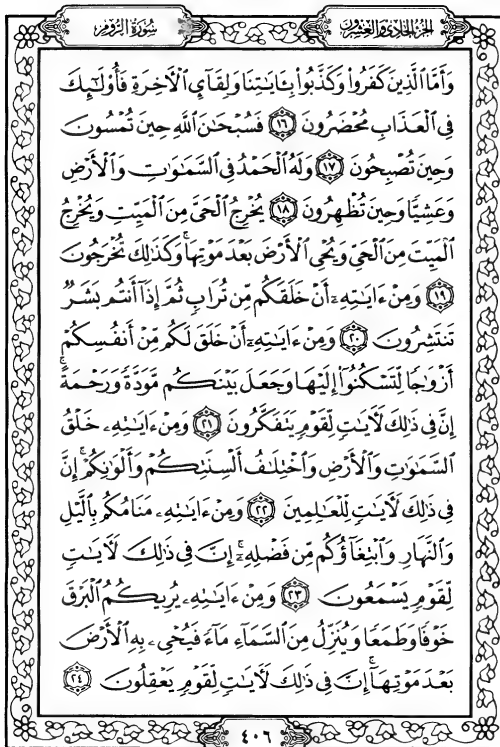 الجزء الحادي والعشرون
سورة الروم
وَأَمَّا الَّذِينَ كَفَرُوا۟ وَكَذَّبُوا۟ بِـَٔايَـٰتِنَا وَلِقَآئِ الْـَٔاخِرَةِ فَأُو۟لَـٰٓئِكَ
فِى الْعَذَابِ مُحْضَرُونَ ﴿١٦﴾ فَسُبْحَـٰنَ اللَّهِ حِينَ تُمْسُونَ
وَحِينَ تُصْبِحُونَ ﴿١٧﴾ وَلَهُ الْحَمْدُ فِى السَّمَـٰوَٰتِ وَالْأَرْضِ
وَعَشِيًّا وَحِينَ تُظْهِرُونَ ﴿١٨﴾ يُخْرِجُ الْحَىَّ مِنَ الْمَيِّتِ وَيُخْرِجُ
الْمَيِّتَ مِنَ الْحَىِّ وَيُحْىِ الْأَرْضَ بَعْدَ مَوْتِهَا ۚ وَكَذَٰلِكَ تُخْرَجُونَ
﴿١٩﴾ وَمِنْ ءَايَـٰتِهِۦٓ أَنْ خَلَقَكُم مِّن تُرَابٍ ثُمَّ إِذَآ أَنتُم بَشَرٌ
تَنتَشِرُونَ ﴿٢٠﴾ وَمِنْ ءَايَـٰتِهِۦٓ أَنْ خَلَقَ لَكُم مِّنْ أَنفُسِكُمْ
أَزْوَٰجًا لِّتَسْكُنُوٓا۟ إِلَيْهَا وَجَعَلَ بَيْنَكُم مَّوَدَّةً وَرَحْمَةً ۚ
إِنَّ فِى ذَٰلِكَ لَـَٔايَـٰتٍ لِّقَوْمٍ يَتَفَكَّرُونَ ﴿٢١﴾ وَمِنْ ءَايَـٰتِهِۦ خَلْقُ
السَّمَـٰوَٰتِ وَالْأَرْضِ وَاخْتِلَـٰفُ أَلْسِنَتِكُمْ وَأَلْوَٰنِكُمْ ۚ إِنَّ
فِى ذَٰلِكَ لَـَٔايَـٰتٍ لِّلْعَـٰلِمِينَ ﴿٢٢﴾ وَمِنْ ءَايَـٰتِهِۦ مَنَامُكُم بِالَّيْلِ
وَالنَّهَارِ وَابْتِغَآؤُكُم مِّن فَضْلِهِۦٓ ۚ إِنَّ فِى ذَٰلِكَ لَـَٔايَـٰتٍ
لِّقَوْمٍ يَسْمَعُونَ ﴿٢٣﴾ وَمِنْ ءَايَـٰتِهِۦ يُرِيكُمُ الْبَرْقَ
خَوْفًا وَطَمَعًا وَيُنَزِّلُ مِنَ السَّمَآءِ مَآءً فَيُحْىِۦ بِهِ الْأَرْضَ
بَعْدَ مَوْتِهَآ ۚ إِنَّ فِى ذَٰلِكَ لَـَٔايَـٰتٍ لِّقَوْمٍ يَعْقِلُونَ ﴿٢٤﴾
٤٠٦